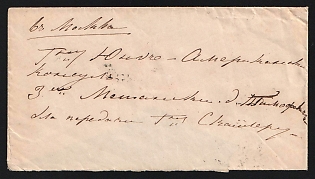 въ Москви
Гну Юнио-Американск
консулу
3 Мещанск. д.
Для передачи Гну Скайлеру